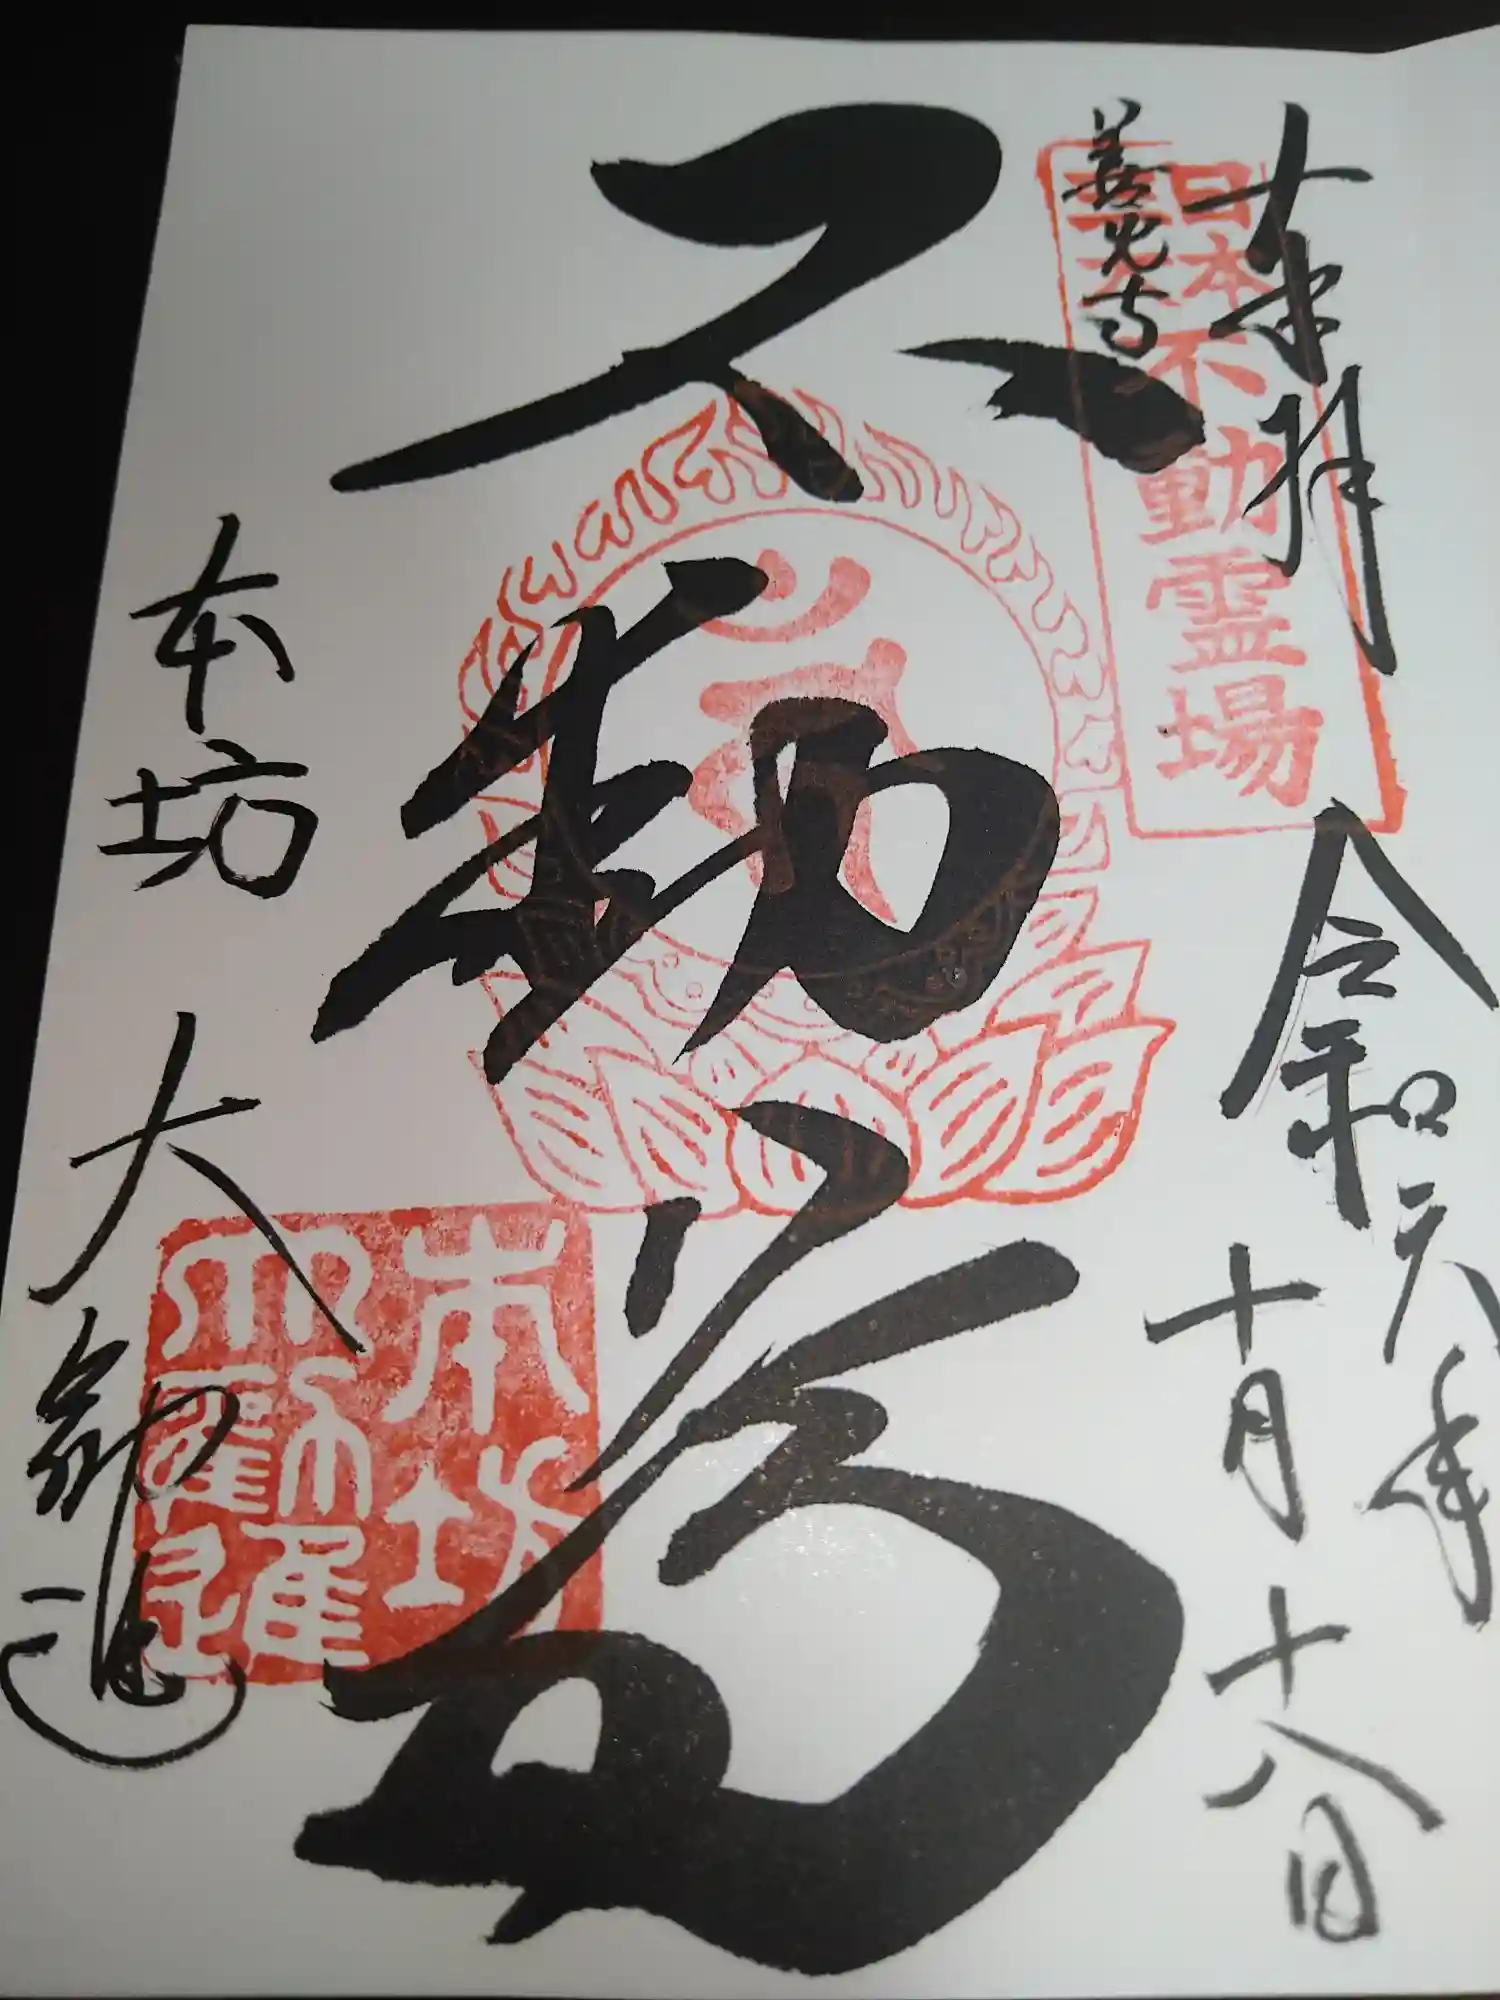 奉拝
令和元年
十月十八日
善光寺
日本
三大
不動霊場
不動尊
本坊 大勧進
本坊